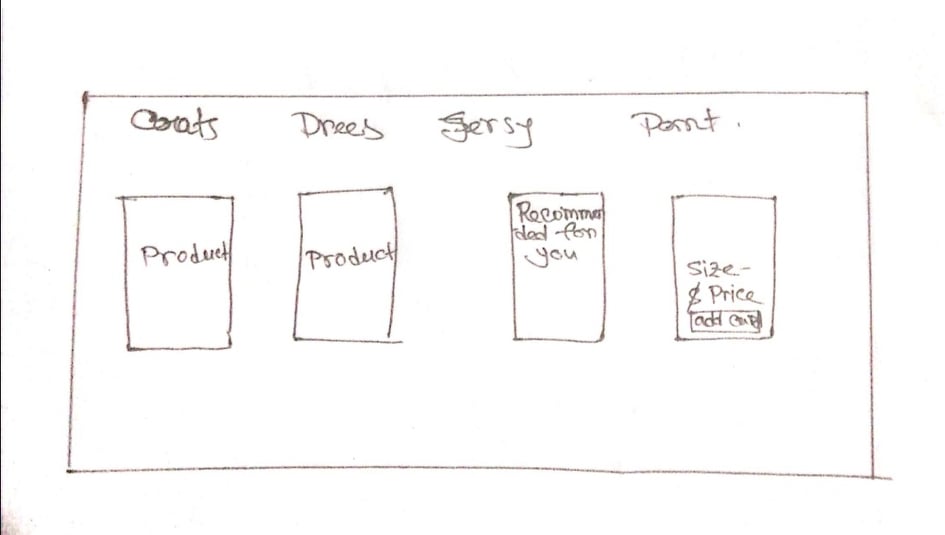 Coats Drees Jersy Pant.
Product
Product
Recommen
ded for
you
Size-
& Price
add cart